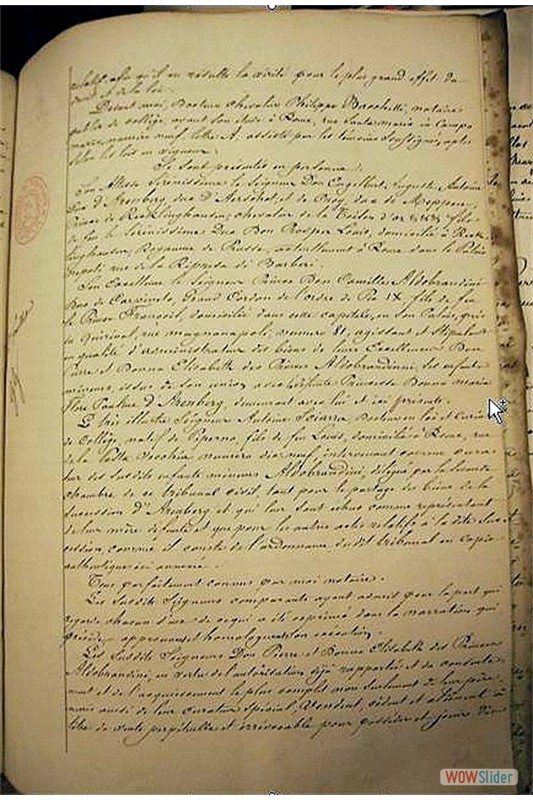 relatif, afin qu'il en résulte la vérité pour le plus grand effet du
droit et de la loi.
Devant moi, Docteur Chevalier Philippe Bacchetti, notaire
public de collège, ayant son étude à Rome, rue Santa Maria in Campo
marzo, numéro neuf lettre A, assisté par les témoins soussignés, aptes
selon les lois en vigueur.
Se sont présentés en personne:
Son Altesse Sérénissime le Seigneur Don Engelbert, Auguste, Antoine
Duc d'Arenberg, duc d'Aerschot et de Croy, duc de Meppen,
Prince de Recklinghausen, chevalier de la Toison d'or fils
de feu le Sérénissime Duc Don Prosper Louis, domicilié à Reck-
linghausen, Royaume de Prusse, actuellement à Rome dans le Palais
rue de la Ripresa di Barberi.
Son Excellence le Seigneur Prince Don Camille Aldobrandini
Duc de Carpineto, Grand Cordon de l'ordre de Pie IX fils de feu
le Prince François, domicilié dans cette capitale, en son Palais, près
du Quirinal, rue magnanapoli, numéro 81, agissant et stipulant
en qualité d'administrateur des biens de leurs Excellences Don
Pierre et Donna Elisabeth des Princes Aldobrandini, ses enfants
mineurs, issus de son union avec la défunte Princesse Donna Maria
Flore Pauline d'Arenberg, demeurant avec lui et ici présents.
Le très illustre Seigneur Antoine Sciarra Docteur en loi et Curial
de Collège, natif de Piperno fils de feu Louis, domicilié à Rome, rue
de la Posta Vecchia numéro dix neuf intervenant comme cura-
teur des susdits enfants mineurs Aldobrandini, délégué par la seconde
chambre de ce tribunal civil, tant pour le partage des biens de la
succession d'Arenberg et qui leur sont échus comme représentant
de leur mère défunte et que pour les autres actes relatifs à la dite suc-
cession, comme il conste de l'ordonnance du dit tribunal en copie
authentique ici annexée.
Tous parfaitement connus par moi notaire.
Les susdits Seigneurs comparants ayant admis pour la part qui
regarde chacun d'eux de ce qui a été exprimé dans la narration qui
précède, approuvent et homologuent son exécution,
Les susdits Seigneurs Don Pierre et Donna Elisabeth des Princes
Aldobrandini, en vertu de l'autorisation déjà rapportée et du consente-
ment et de l'acquiescement le plus complet non seulement de leur père,
mais aussi de leur curateur spécial, vendent, cèdent et aliènent à
titre de vente perpétuelle et irrévocable pour posséder et jouir
WOWSlider